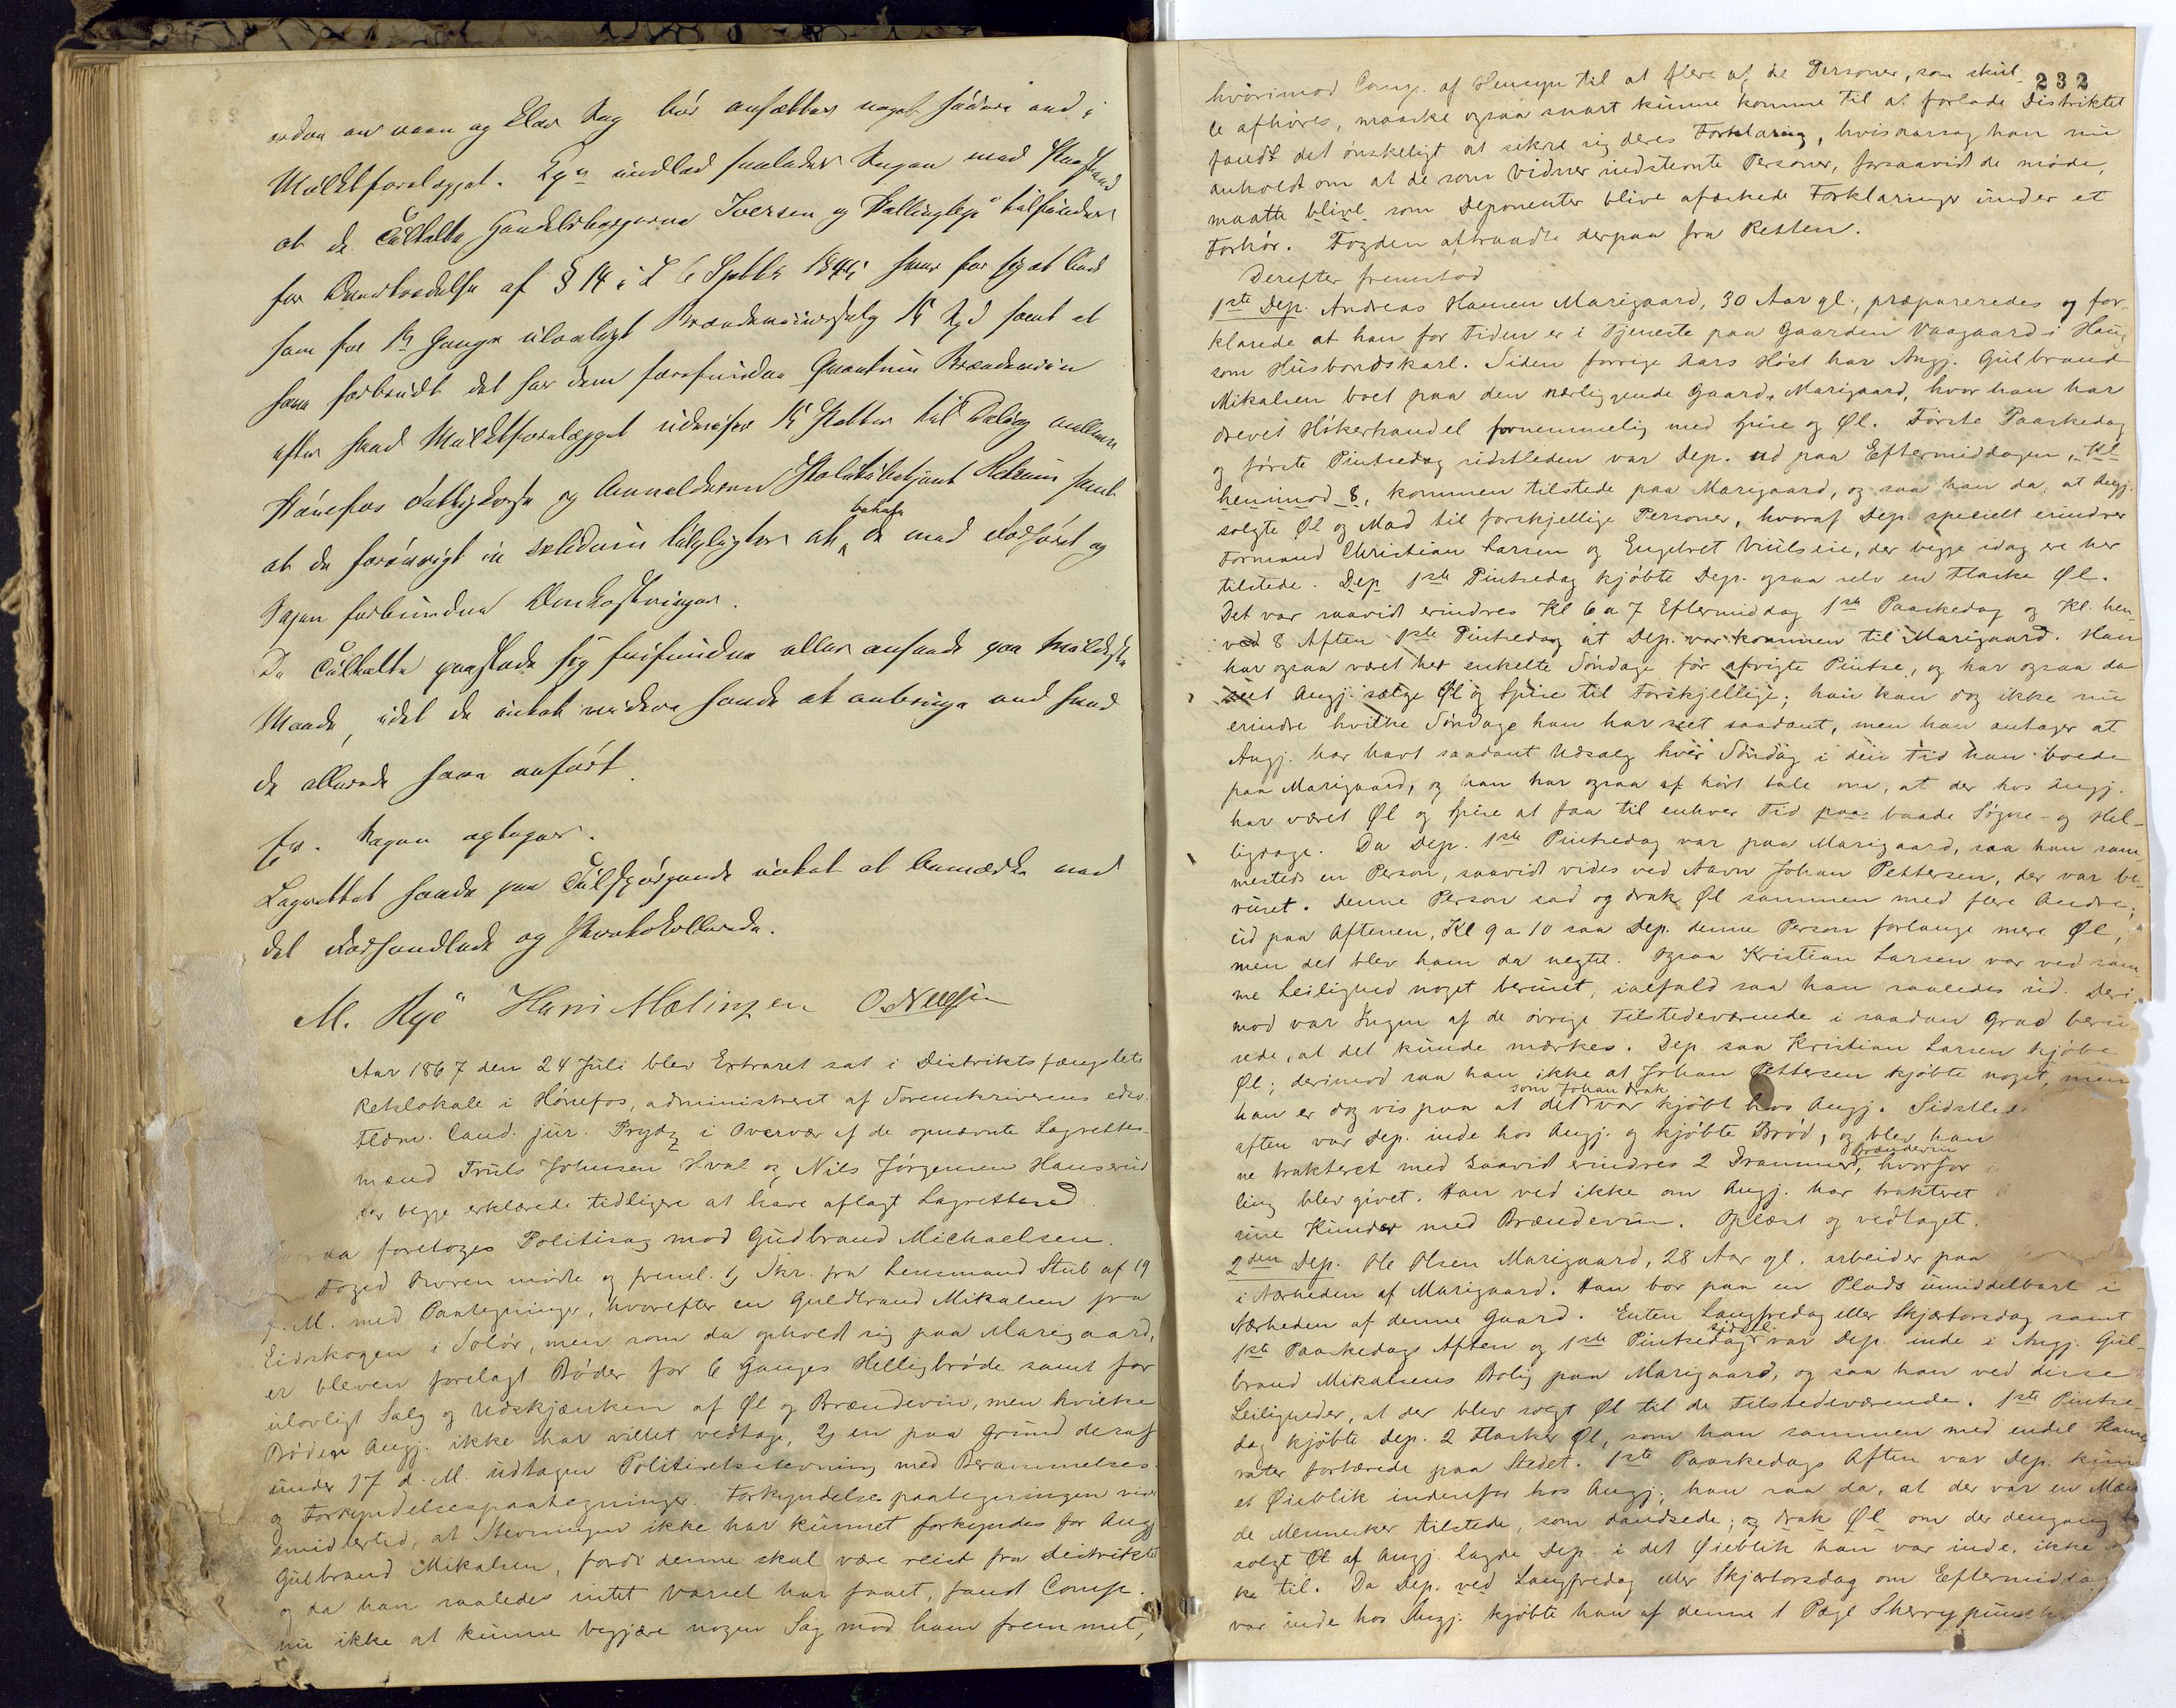 og klar Sag bør ansættes noget høiere end i
Mulktforelægget. indlod saaledes Sagen med Paastand
at de Tiltalte Handelsborgerne Iversen og tilfindes
for Overtrædelse af § 14 i L 6 Septbr 1845 hver for sig at bøde
som for 1ste Gangs ulovligt Brændeviinssalg 15 Spd samt at
have forbrudt det hos dem forefundne Quantum Brændeviin
efter hvad Mulktforelægget udviser til Deling mellem
Hønefos Fattigkasse og Anmelderen Politibetjent samt
at de forøvrigt in solidum tilpligtes at betale de med Forhøret og
Sagen forbundne Omkostninger.
De Tiltalte paastode sig frifundne eller ansete paa mildeste
Maade, idet de intet videre havde at anbringe end hvad
de allerede have anført.
Sagen optages.
Lagrettet havde paa Tilspørgende intet at bemærke mod
det Forhandlede og Protokollerede.
M. Rye Hans Mælingen O. Nilssen
Aar 1867 den 24 Juli blev Extraret sat i Distriktsfængslets
Retslokale i Hønefos, administreret af Sorenskriverens edsv.
Fuldm. Cand. jur. Prydz i Overvær af de opnævnte Lagrettes-
mænd Truls Johnsen Hval og Nils Jørgensen Hanserud
der begge erklærede tidligere at have aflagt Lagrettesed.
foretoges Politisag mod Gudbrand Michaelsen.
Foged mødte og freml. 1, Skr. fra Lensmand Stub af 19
f. M. med Paategninger, hvorefter en Guldbrand Mikalsen fra
Eidskogen i Solør, men som da opholdt sig paa Marigaard,
er bleven forelagt Bøder for 6 Ganges Helligbrøde samt for
ulovligt Salg og Udskjænken af Øl og Brændeviin, men hvilke
Bøder Angj. ikke har villet vedtage, 2, en paa Grund deraf
under 17 d. M. udtagen Politiretsstevning med Berammelses-
og Forkyndelsespaategninger. Forkyndelsespaategningen viser
emidlertid, at Stevningen ikke har kunnet forkyndes for Angj.
Gulbrand Mikalsen, fordi denne skal være reist fra Distriktet
og da han saaledes intet Varsel har faaet, fandt Comp.
nu ikke at kunne begjære nogen Sag mod ham fremmet,
232
hvorimod Comp. af Hensyn til at flere af de Personer, som skul-
le afhøres, maaske ogsaa snart kunne komme til at forlade Distriktet
fandt det ønskeligt at sikre sig deres Forklaring, hvisaarsag han nu
anholdt om at de som Vidner indstevnte Personer, forsaavidt de møde,
maatte blive som Deponenter blive afæskede Forklaringer under et
Forhør. Fogden aftraadte derpaa fra Retten.
Derefter fremstod
1ste Dep. Andreas Hansen Marigaard, 30 Aar gl., præpareredes og for-
klarede at han for Tiden er i Tjeneste paa Gaarden Vaagaard i Haug
som Husbondskarl. Siden forrige Aars Høst har Angj. Gulbrand
Mikalsen boet paa den nærliggende Gaard, Marigaard, hvor han har
drevet Høkerhandel fornemmelig med Spise og Øl. Første Paaskedag
og første Pintsedag sidstleden var Dep. ud paa Eftermiddagen, Kl
henimod 8, kommen tilstede paa Marigaard, og saa han da, at Angj.
solgte Øl og Mad til forskjellige Personer, hvoraf Dep. specielt erindrer
Formand Christian Larsen og Engebret Viulseie, der begge idag ere her
tilstede. Dep 1ste Pintsedag kjøbte Dep. ogsaa selv en Flaske Øl.
Det var saavidt erindres Kl 6 a 7 Eftermiddag 1ste Paaskedag og Kl. hen-
ved 8 Aften 1ste Pintsedag at Dep. var kommen til Marigaard. Han
har ogsaa været her enkelte Søndage før afvigte Pintse, og har ogsaa da
seet Angj. sælge Øl og Spise til Forskjellige; han kan dog ikke nu
erindre hvilke Søndage han har seet saadant, men han antager at
Angj. har havt saadant Udsalg hver Søndag i den Tid han boede
paa Marigaard, og han har ogsaa af hørt tale om, at der hos Angj.
har været Øl og Spise at faa til enhver Tid paa baade Søgne- og Hel-
ligdage. Da Dep. 1ste Pintsedag var paa Marigaard, saa han sam-
mesteds en Person, saavidt vides ved Navn Johan Pettersen, der var be-
ruset. Denne Person sad og drak Øl sammen med flere Andre;
ud paa Aftenen, Kl 9 a 10 saa Dep. denne Person forlange mere Øl,
men det blev ham da negtet. Ogsaa Kristian Larsen var ved sam-
me Leilighed noget beruset, ialfald saa han saaledes ud. Deri-
mod var Ingen af de øvrige Tilstedeværende i saadan Grad beru-
sede, at det kunde mærkes. Dep saa Kristian Larsen kjøbe
Øl; derimod saa han ikke at Johan Pettersen kjøbte noget, men
han er dog vis paa at det som Johan drak var kjøbt hos Angj. Sidstled
aften var Dep. inde hos Angj. og kjøbte Brød, og blev han
ne trakteret med saavidt erindres 2 Drammer Brændeviin, hvorfor
ling blev givet. Han ved ikke om Angj. har trakteret
sine Kunder med Brændeviin. Oplæst og vedtaget.
2den Dep. Ole Olsen Marigaard, 28 Aar gl. arbeider paa
i Nærheden af Marigaard. Han bor paa en Plads umiddelbart i
Nærheden af denne Gaard. Enten Langfredag eller Skjærtorsdag samt
1ste Paaskedags Aften og 1ste Pintsedag sidstl. var Dep. inde i Angj. Gul-
brand Mikalsens Bolig paa Marigaard, og saa han ved disse
Leiligheder, at der blev solgt Øl til de Tilstedeværende. 1ste Pintse-
dag kjøbte Dep. 2 Flasker Øl, som han sammen med endel Kame-
rater fortærede paa Stedet. 1ste Paaskedags Aften var Dep. kun
et Øieblik indenfor hos Angj.; han saa da, at der var en Mæng
de Mennesker tilstede, som dandsede; og drak Øl om der dengang
solgt Øl af Angj. lagde Dep. i det Øieblik han var inde, ikke
ke til. Da Dep. ved Langfredag eller Skjærtorsdag om Eftermiddag
var inde hos Angj. kjøbte han af denne 1 Pægl Sherrypunsch